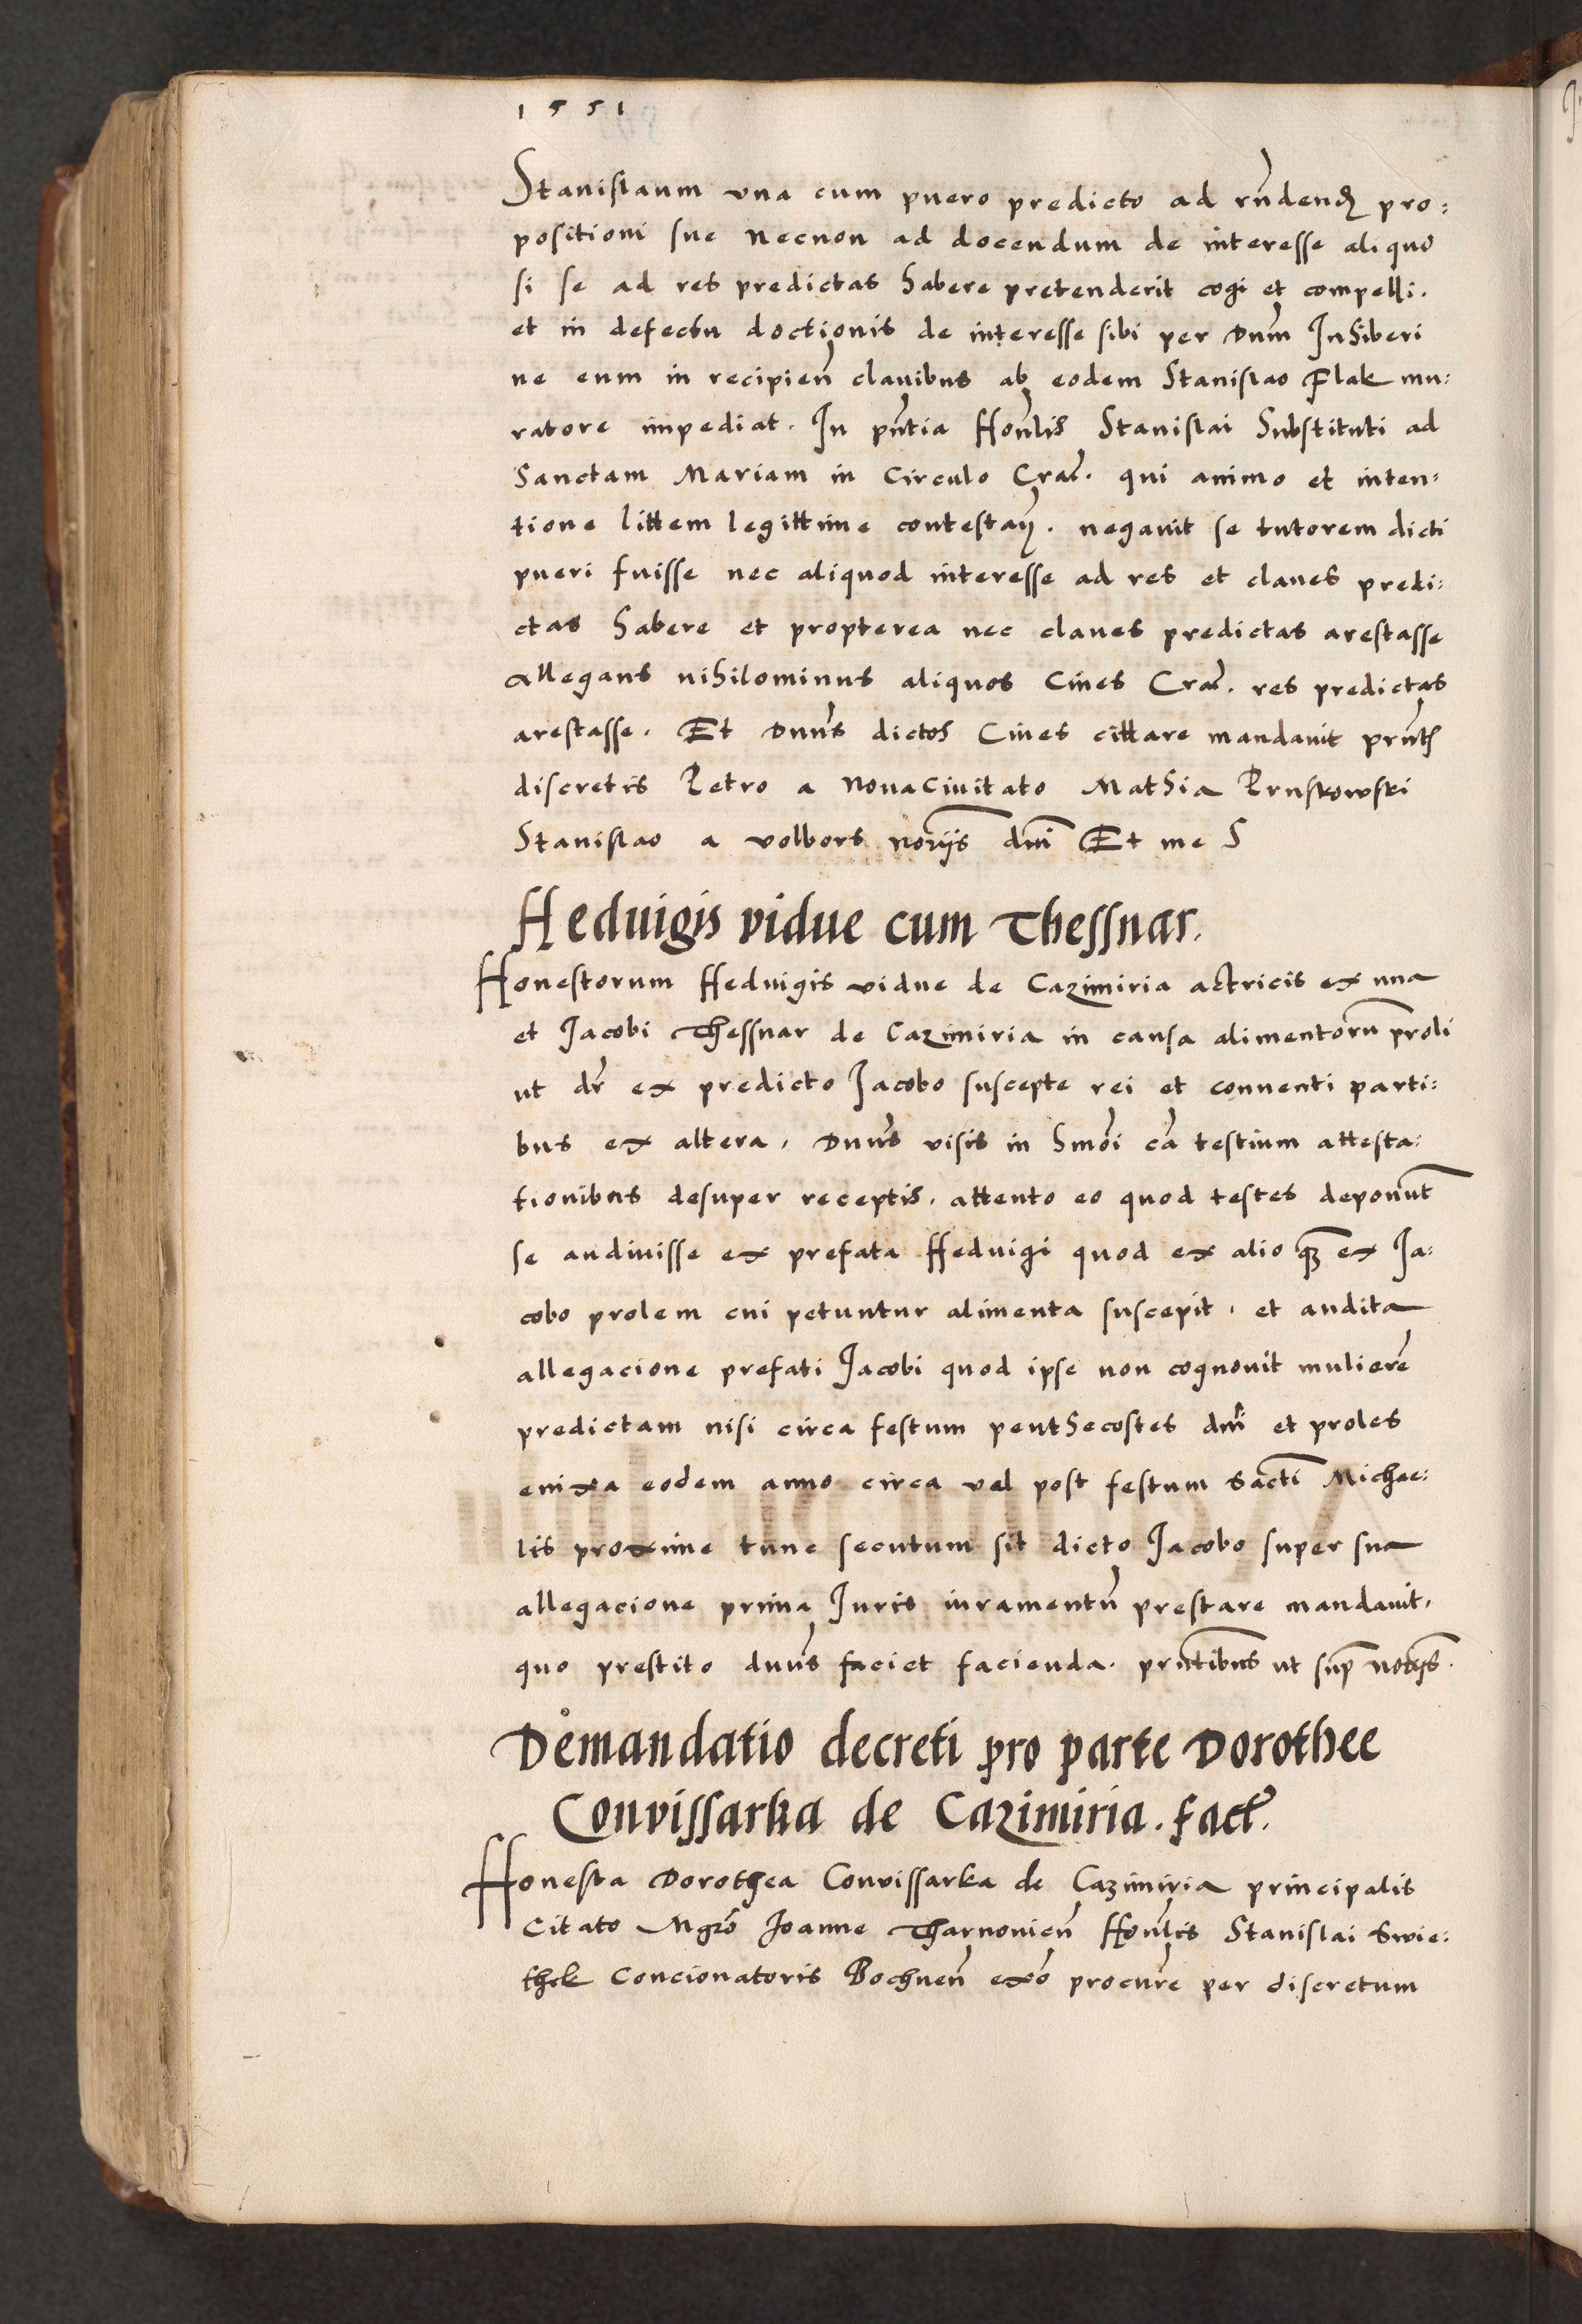 1551
Stanislaum vna cum puero predicto ad rn̄dendꝫ pro:
positioni sue Necnon ad docendum de interesse aliquo
si se ad res predictas habere pretenderit cogi et compelli.
et in defectu doctionis de interesse sibi per Dnm̄ Inhiberi
ne eum in recipien̄ clauibus ab eodem Stanislao Flak mu:
ratore impediat. In pn̄tia Honl̄is Stanislai Substituti ad
Sanctam Mariam in Circulo Crac̄. qui animo et inten:
tione littem legittime contestan̄. negauit se tutorem dicti
pueri fuisse nec aliquod interesse ad res et claues predi:
ctas habere et propterea nec claues predictas arestasse
allegans nihilominus aliquos Ciues Crac̄. res predictas
arestasse. Et Dnus̄ dictos Ciues cittare mandauit prn̄tꝫ
discretis Petro a Nova Ciuitato Mathia Pruskowski
Stanislao a volbors nor̄ijs dnī Et me S
Heduigis vidue cum Thessnar.
Honestorum Heduigis vidue de Cazimiria actricis ex una
et Jacobi Thessnar de Cazimiria in causa alimentorū proli
ut dr̄ ex predicto Jacobo suscepte rei et conuenti parti:
bus ex altera, Dnus̄ visis in hmōi cā testium attesta:
tionibus desuper receptis. attento eo quod testes deponūt
se audiuisse ex prefata Heduigi quod ex alio qꝫ ex Ja:
cobo prolem cui petuntur alimenta suscepit, et audita
allegacione prefati Jacobi quod ipse non cognouit mulierē
predictam nisi circa festum penthecostes dnī et proles
enixa eodem anno circa vel post festum sactī Michae:
lis proxime tunc secutum sit dicto Jacobo super sua
allegacione prima Juris iuramentū prestare mandauit,
quo prestito dnus̄ faciet facienda. prn̄tibus ut sup̄ notijs̄.
Demandatio decreti pro parte Dorothee
Convissarka de Cazimiria. fact̄.
Honesta Dorothea Convissarka de Cazimiria principalis
Citato Mgrō Joanne Tharnouien̄ Honl̄is Stanislai Swie:
thek Concionatoris Bochnen̄ exō procurē per discretum